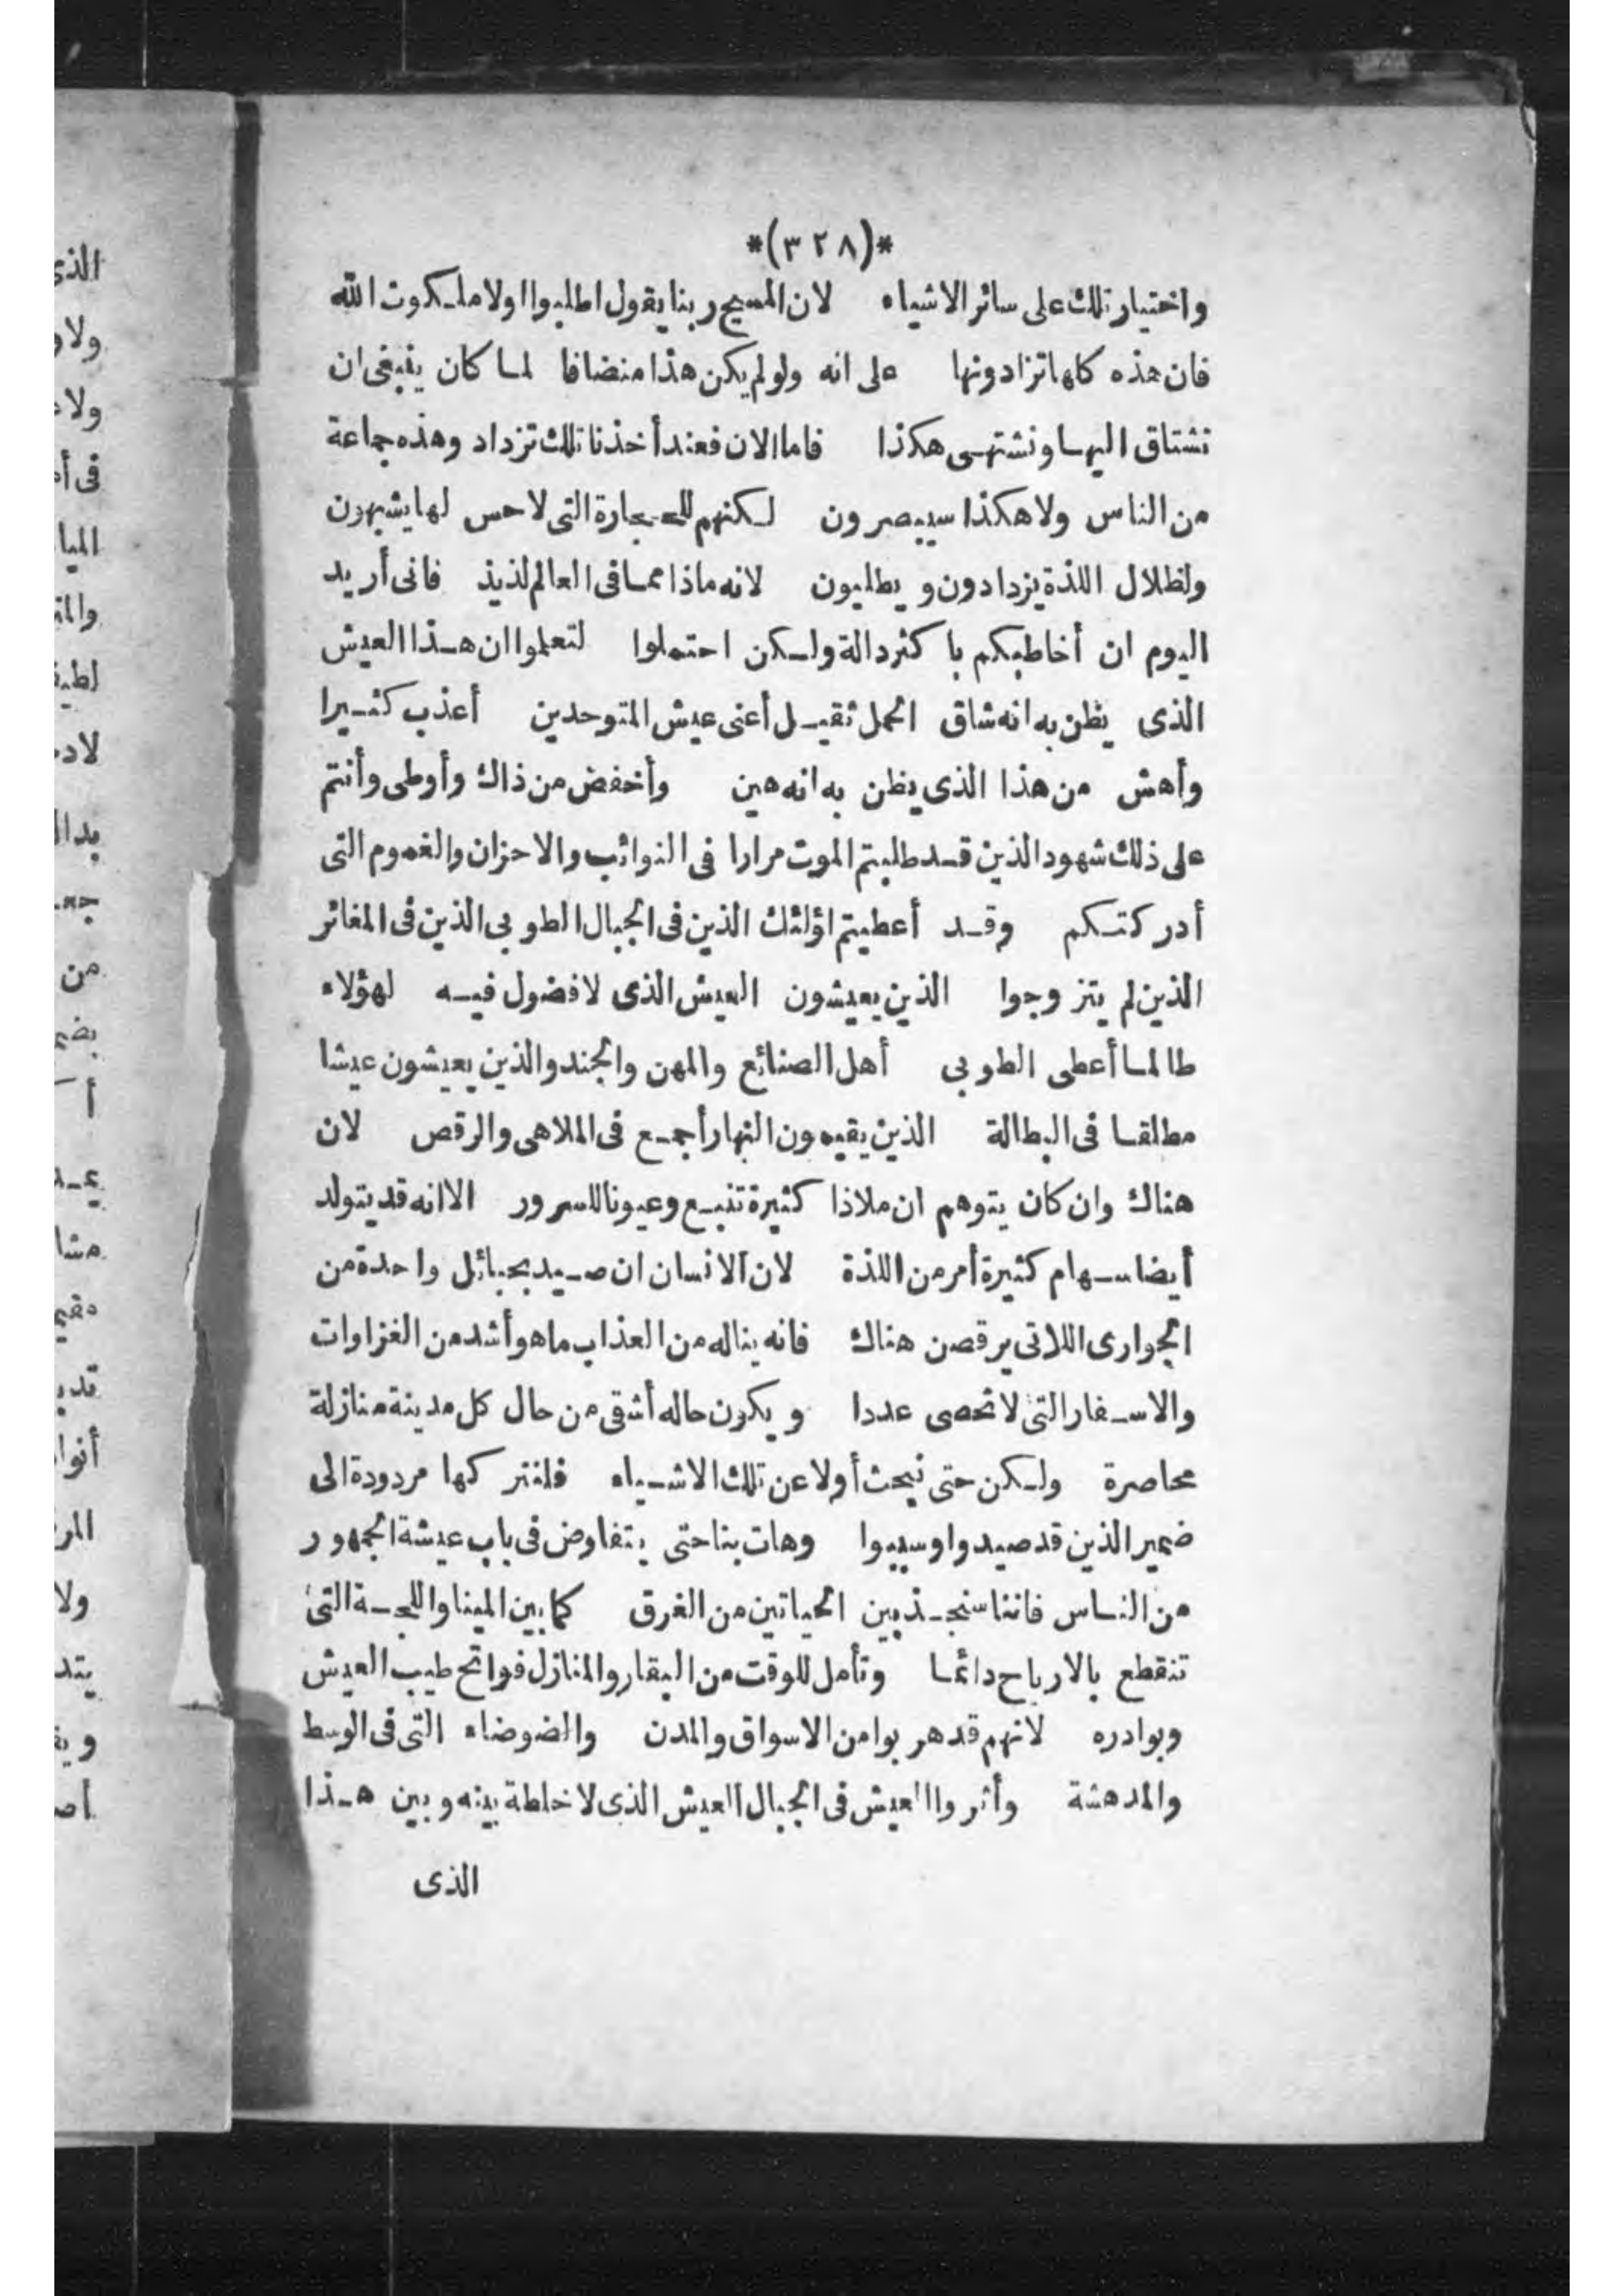 *(٣٢٨)*
واختيار تلك على سائر الاشياء لان المسيح ربنا يقول اطلبوا اولا ملكوت الله
فان هذه كلها تزادونها على انه ولو لم يكن هذا منضافا لما كان ينبغى ان
نشتاق اليها ونشتهى هكذا فاما الان فعند أخذنا تلك تزداد وهذه جماعة
من الناس ولا هكذا سيبصرون لكنهم للحجارة التى لا حس لها يشبهون
ولظلال اللذة يزدادون ويطلبون لانه ماذا مما فى العالم لذيذ فانى أريد
اليوم ان أخاطبكم با كثر دالة ولكن احتملوا لتعلموا ان هذا العيش
الذى يظن به انه شاق الحمل ثقيل أعنى عيش المتوحدين أعذب كثيرا
وأهش من هذا الذى يظن به انه هين وأخفض من ذاك وأوطى وأنتم
على ذلك شهود الذين قد طلبتم الموت مرارا فى النوائب والاحزان والغموم التى
أدركتكم وقد أعطيتم اؤلئك الذين فى الجبال الطوبى الذين فى المغائر
الذين لم يتزوجوا الذين يعيشون العيش الذى لا فضول فيه لهؤلاء
طالما أعطى الطوبى أهل الصنائع والمهن والجند والذين يعيشون عيشا
مطلقا فى البطالة الذين يقيمون النهار أجمع فى الملاهى والرقص لان
هناك وان كان يتوهم ان ملاذا كثيرة تنبع وعيونا للسرور الا انه قد يتولد
أيضا سهام كثيرة أمر من اللذة لان الانسان ان صيد بحبائل واحدة من
الجوارى اللاتى يرقصن هناك فانه يناله من العذاب ما هو أشد من الغزاوات
والاسفار التى لا تحصى عددا ويكون حاله أشقى من حال كل مدينة منازلة
محاصرة ولكن حتى نبحث أولا عن تلك الاشياء فلنتركها مردودة الى
ضمير الذين قد صيدوا وسبيوا وهات بنا حتى يتفاوض فى باب عيشة الجمهور
من الناس فاننا سنجد بين الحياتين من الفرق كما بين المينا واللجة التى
تنقطع بالارياح دائما وتأمل للوقت من البقار والمنازل فواتح طيب العيش
وبوادره لانهم قد هربوا من الاسواق والمدن والضوضاء التى فى الوسط
والمدهشة وأثروا العيش فى الجبال العيش الذى لا خلطة بينه وبين هذا
الذى